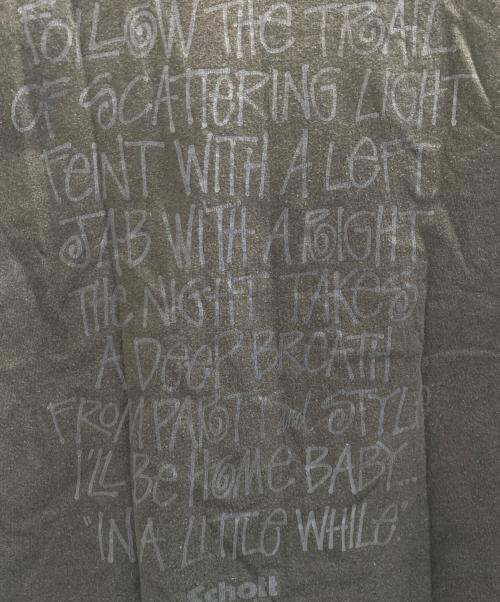 FOLLOW THE TRAIL
OF SCATTERING LIGHT
FEINT WITH A LEFT
JAB WITH A RIGHT
THE NIGHT TAKES
A DEEP BREATH
FROM PARTY and STYLE
I'LL BE HOME BABY...
"IN A LITTLE WHILE."
Schott